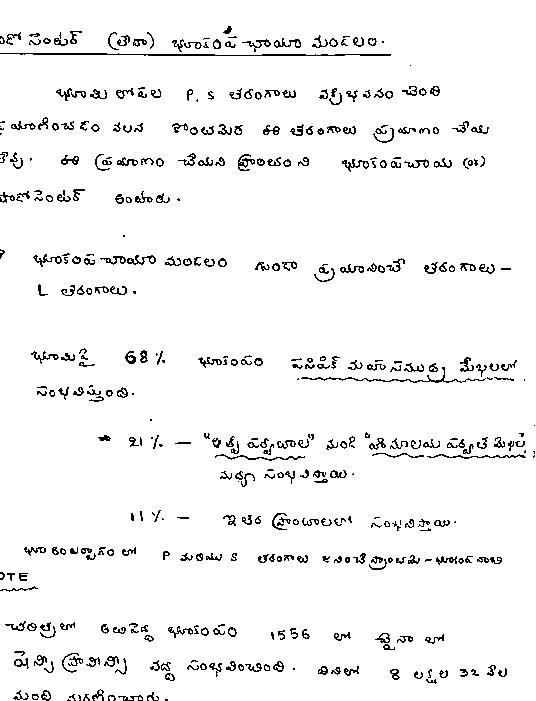 సెంటర్ (లేదా) భూకంప ఛాయా మండలం.
భూమి లోపల P, S తరంగాలు వక్రీభవనం చెంది
వలన కొంతమేర ఈ తరంగాలు ప్రయాణం చేయ
లేవు. ఈ ప్రయాణం చేయని ప్రాంతంని భూకంపఛాయ (or)
షాడోసెంటర్ అంటారు.
భూకంప ఛాయా మండలం గుండా ప్రయాణించే తరంగాలు –
L తరంగాలు.
భూమిపై 68% భూకంపం పసిఫిక్ మహాసముద్ర మేఖలలో
సంభవిస్తుంది.
21% – "ఆల్ప్స్ పర్వతాల" నుండి "హిమాలయ పర్వత మేఖల"
మధ్య సంభవిస్తాయి.
11% – ఇతర ప్రాంతాలలో సంభవిస్తాయి.
లో P మరియు S తరంగాలు జనించే ప్రాంతమే – భూకంపనాభి
NOTE
చరిత్రలో అతిపెద్ద భూకంపం 1556 లో చైనా లో
షెన్సి ప్రావిన్సి వద్ద సంభవించింది. దీనిలో 8 లక్షల 32 వేల
మంది మరణించారు.